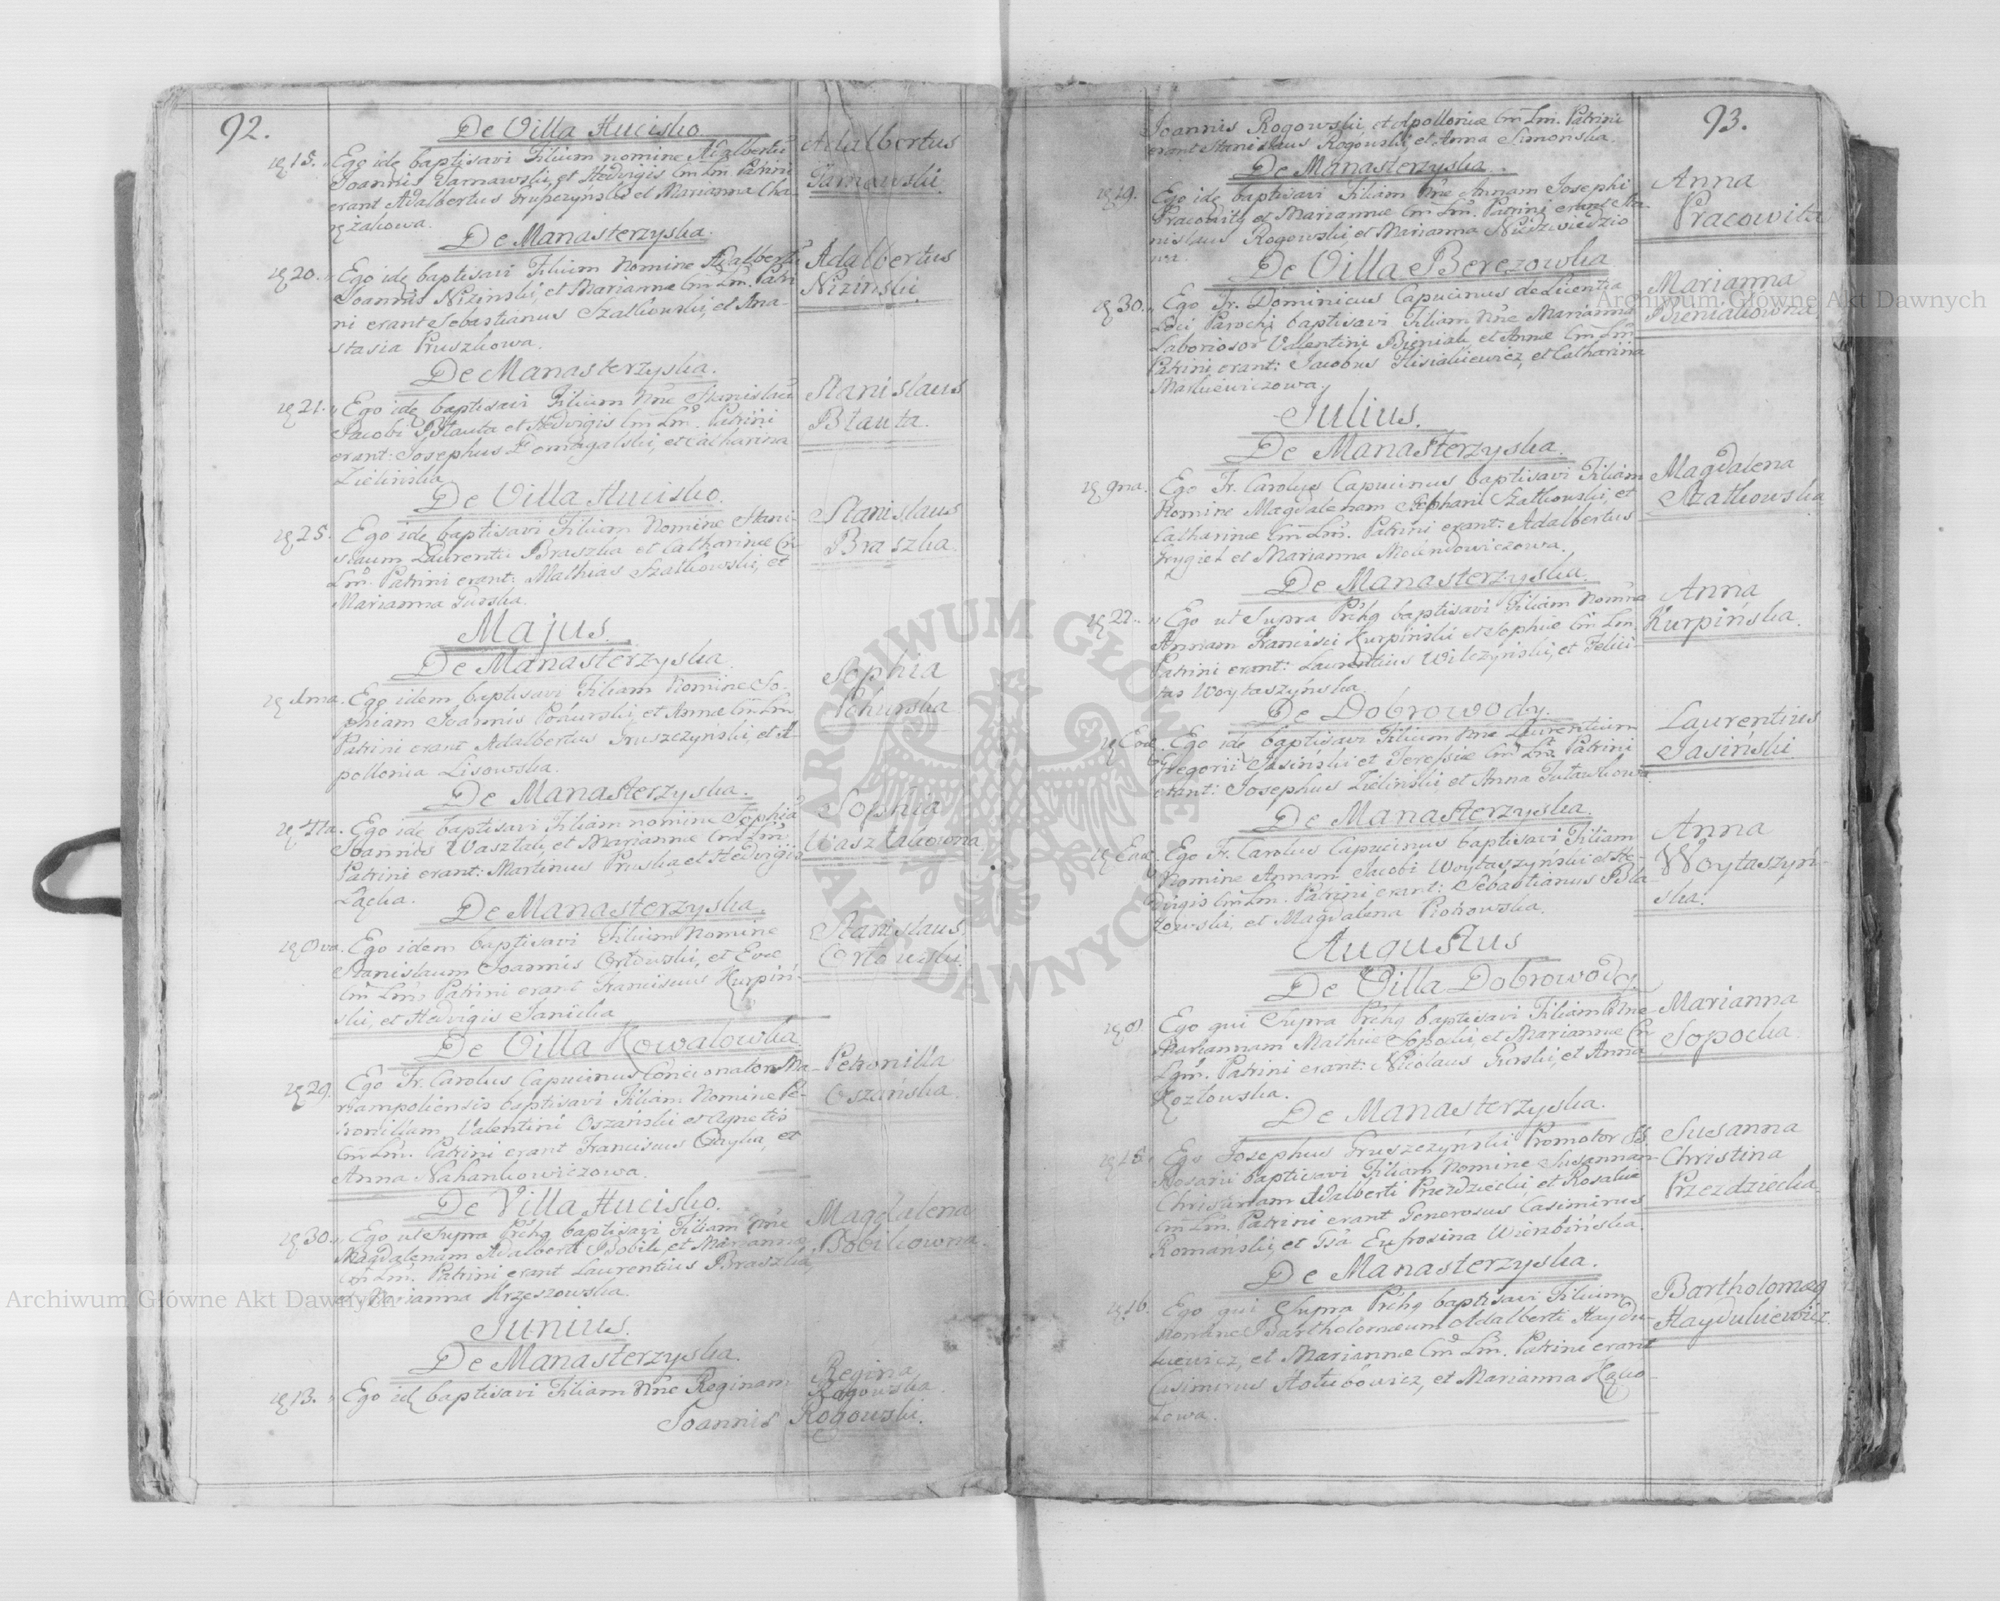 92.
De Villa Hucisko.
Ego idę baptisavi Filium nomine Adalbertū
Joannis Tarnawski, et Hedvigis Cm Lm Patrini
erant Adalbertus Gruszczyński et Marianna Cha-
Adalbertus
Tarnawski.
De Manasterzyska.
20. Ego idę baptisavi Filium Nomine Adalbertū
Joannis Niziński, et Mariannæ Cm Lm. Patri
ni erant Sebastianus Szatkowski, et Ana-
stasia Pruszkowa.
Adalbertus
Niziński.
De Manasterzyska.
21. Ego idę baptisavi Filium Nne Stanislaū
Jacobi Błauta et Hedvigis Cm Lm. Patrini
erant: Josephus Domagalski, et Catharina
Zielińska
Stanislaus
Błauta.
De Villa Hucisko.
25. Ego idę baptisavi Filium Nomine Stani-
slaum Laurentii Braszka et Catharinæ Cm
Lm. Patrini erant: Mathias Szatkowski, et
Marianna Gurska.
Stanislaus
Braszka.
Majus.
De Manasterzyska.
Ego idem baptisavi Filiam Nomine So-
phiam Joannis et Annæ Cm Lm
Patrini erant Adalbertus Gruszczynski, et A-
pollonia Lisowska.
Sophia
De Manasterzyska.
4ta. Ego idę baptisavi Filiam nomine Sophiā
Joannis Wasztak, et Mariannæ Cm Lm
Patrini erant: Martinus Pruska, et Hedvigis
Sophia
Wasztakowna
De Manasterzyska.
Ego idem baptisavi Filium Nomine
Stanislaum Joannis Orłowski, et Evæ
Cm Lm. Patrini erant Franciscus Kurpiń-
ski, et Hedvigis Janicka
Stanislaus
Orłowski.
De Villa Kowalowka.
29. Ego Fr. Carolus Capucinus Concionator Ma-
riampoliensis baptisavi Filiam Nomine Pe-
tronillam, Valentini Oszański et Agnetis
Cm Lm. Patrini erant Franciscus et
Anna Nahankowiczowa.
Petronilla
Oszańska.
De Villa Hucisko.
30. Ego ut supra baptisavi Filiam Nne
Magdalenam Adalberti Bobik, et Marianna
Cm Lm. Patrini erant Laurentius Braszka,
et Marianna Krzeszowska.
Magdalena
Bobikowna.
Junius.
De Manasterzyska.
13. Ego idę baptisavi Filiam Nne Reginam
Joannis
Regina
Rogowska
Rogowski.
93.
Joannis Rogowski, et Apolloniæ Cm Lm. Patrini
erant Stanislaus Rogowski, et Anna Simonska.
De Manasterzyska.
Ego idę baptisavi Filiam Nne Annam Josephi
Pracowity et Mariannæ Cm Lm. Patrini erant Sta-
nislaus Rogowski, et Marianna Niedzwiedzio
Anna
Pracowita
De Villa Berezowka
30. Ego Fr. Dominicus Capucinus de Licentia
Loci Parochi baptisavi Filiam Nne Marianna
Laboriosor Valentini Bieniak, et Annæ Cm Lm.
Patrini erant: Jacobus et Catharina
Markiewiczowa
Marianna
Bieniakowna
Julius.
De Manasterzyska.
9na. Ego Fr. Carolus Capucinus baptisavi Filiam
Nomine Magdalenam Stephani Szatkowski, et
Catharinæ Cm Lm. Patrini erant: Adalbertus
Frygiel et Marianna
Magdalena
Szatkowska
De Manasterzyska.
22. Ego ut Supra baptisavi Filiam Nomine
Annam Francisci Kurpiński et Sophiæ Cm Lm
Patrini erant: Laurentius Wilczyński, et Felici-
tas Woytaszyńska.
Anna
Kurpińska.
De Dobrowody.
Ego idę baptisavi Filium Nne Laurentium
Gregorii Jasiński et Teressiæ Cm Lm. Patrini
erant: Josephus Zieliński et Anna
Laurentius
Jasiński.
De Manasterzyska.
Ego Fr. Carolus Capucinus baptisavi Filiam
Nomine Annam Jacobi Woytaszyński et He-
dvigis Cm Lm. Patrini erant: Sebastianus
et Magdalena Piotrowska.
Anna
Woytaszyń-
ska.
Augustus
De Villa Dobrowody.
Ego qui Supra baptisavi Filiam Nne
Mariannam Mathiæ Sopocki, et Mariannæ Cm
Lgm. Patrini erant: Nicolaus Gurski, et Anna
Kozłowska.
Marianna
Sopocka
De Manasterzyska.
Ego Josephus Gruszczyński Promotor SS.
Rosarii baptisavi Filiam Nomine Susannam
Christinam Adalberti Przezdziecki, et Rosaliæ
Cm Lm. Patrini erant Generosus Casimirus
Romański, et Gsa Eufrosina Wierzbińska.
Susanna
Christina
Przezdziecka
De Manasterzyska.
16. Ego qui Supra baptisavi Filium
Nomine Bartholomæum Adalberti Haydu-
kiewicz, et Mariannæ Cm Lm. Patrini erant
Casimirus Hołubowicz, et Marianna
Bartholomæ
Haydukiewicz.
Archiwum Główne Akt Dawnych
Archiwum Główne Akt Dawnych
ARCHIWUM GŁÓWNE AKT DAWNYCH